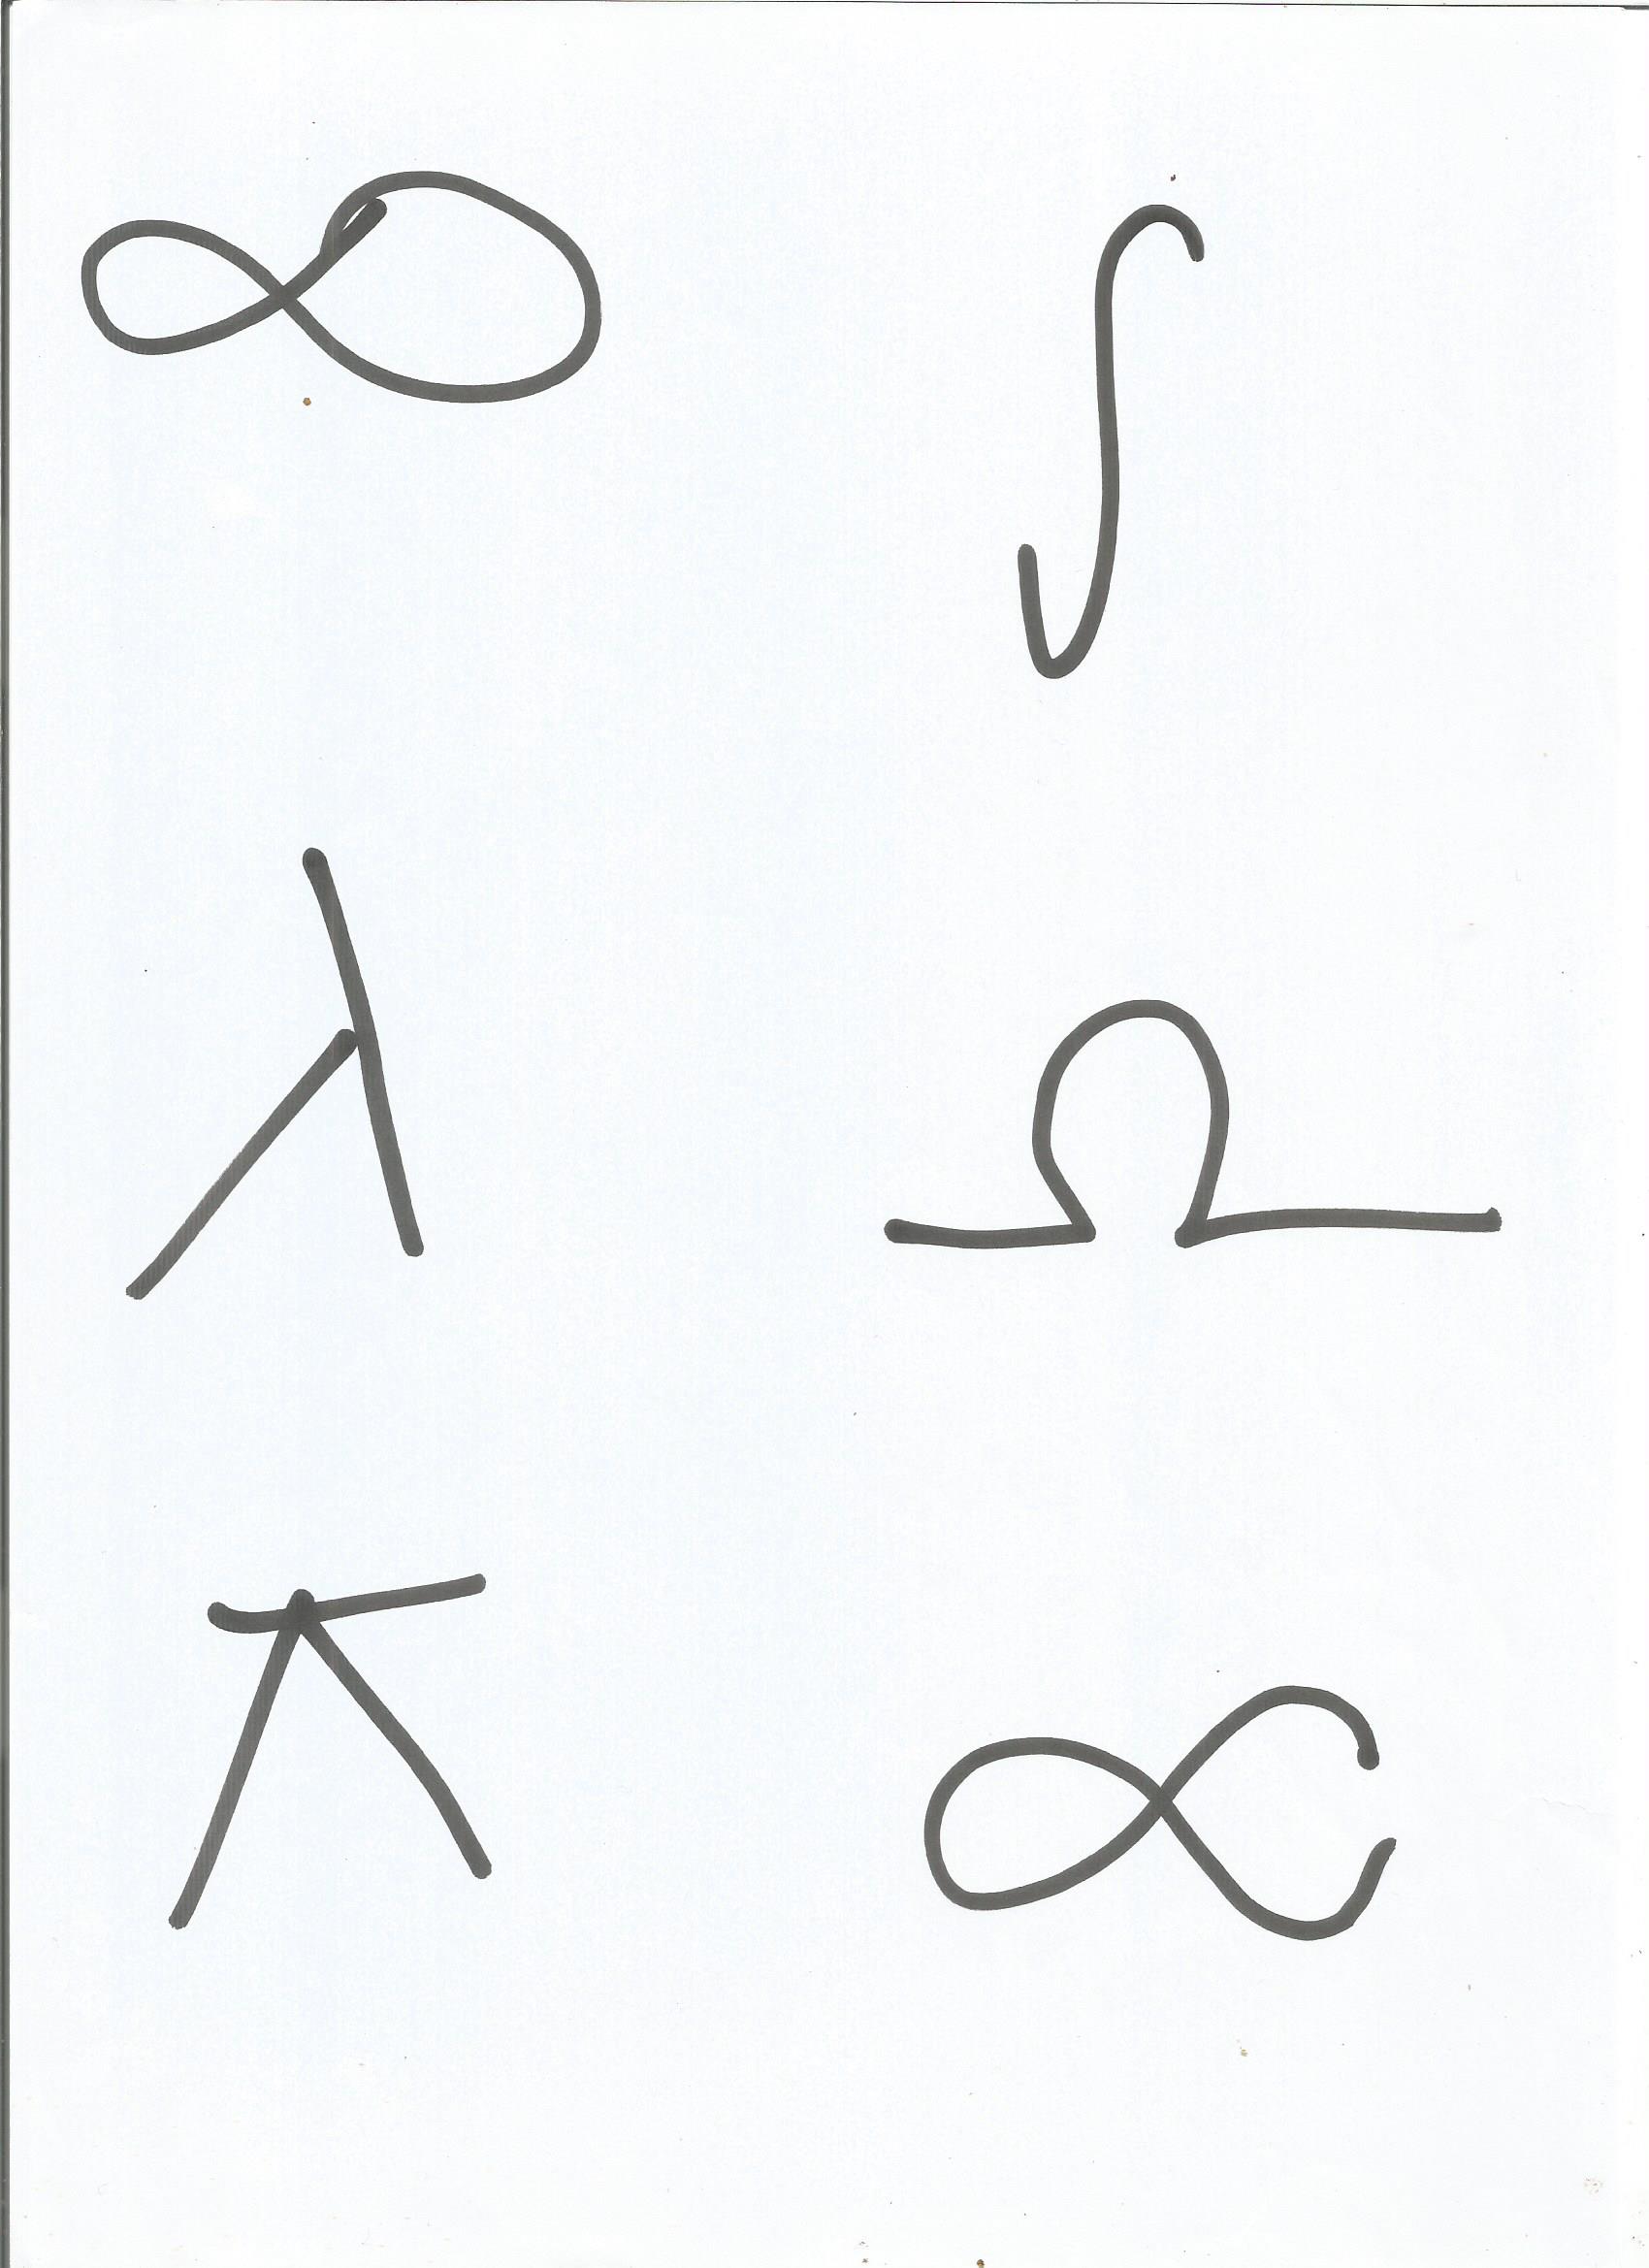 ∞ ∫
λ Ω
π ∝